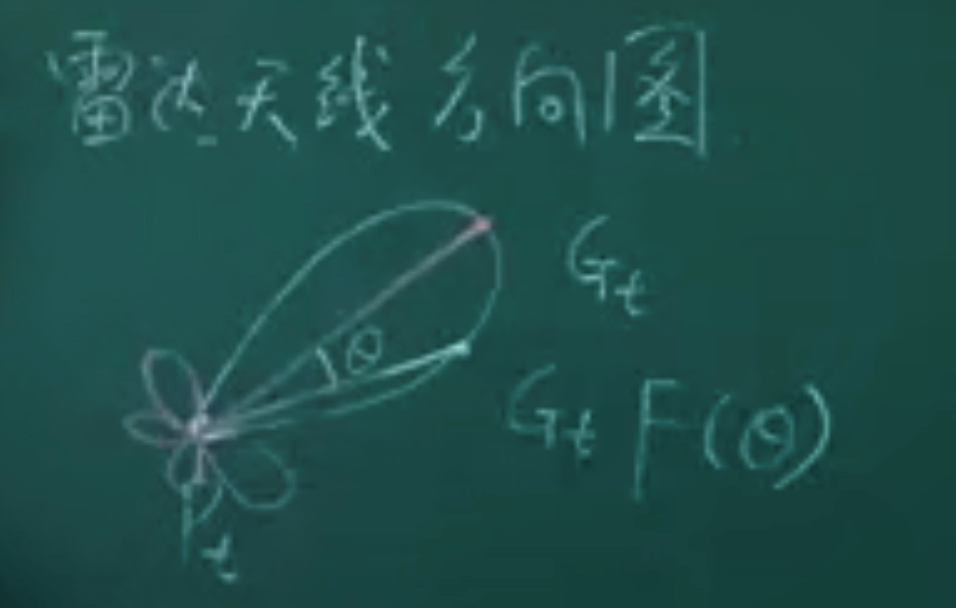 雷达天线方向图
G_t
θ
G_t F(θ)
P_t